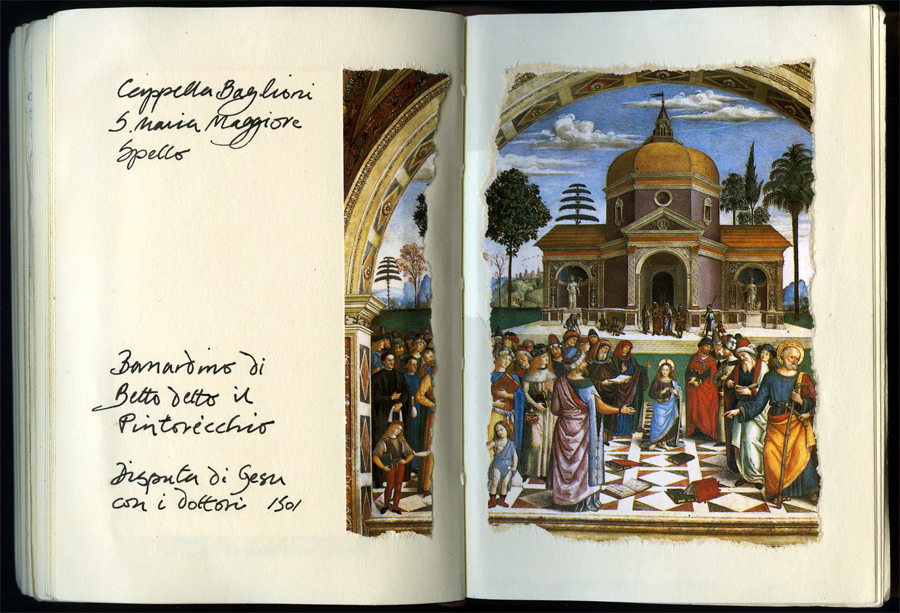 Cappella Baglioni
S. Maria Maggiore
Spello
Bernardino di
Betto detto il
Pintorecchio
Disputa di Gesu
con i dottori 1501